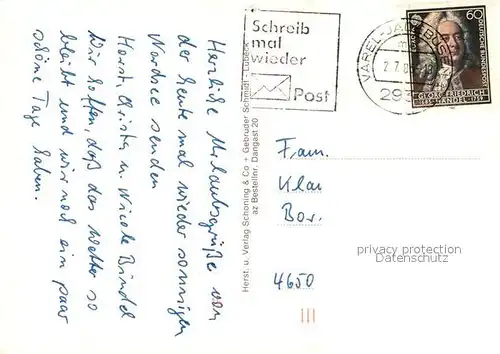 Herzliche Urlaubsgrüße von
der heute mal wieder sonnigen
Nordsee senden
Horst, Christa u. Nicole
Wir hoffen, daß das Wetter so
bleibt und wir noch ein paar
schöne Tage haben.
Herst. u. Verlag Schöning & Co + Gebrüder Schmidt - Lübeck
az Bestellnr. Dangast 20
Schreib
mal
wieder
Post
VAREL-JA
2.7.8
293
60
DEUTSCHE BUNDESPOST
EUROPA
GEORG FRIEDRICH
1685 HÄNDEL 1759
Fam.
Klau
Bor.
4650
privacy protection
Datenschutz